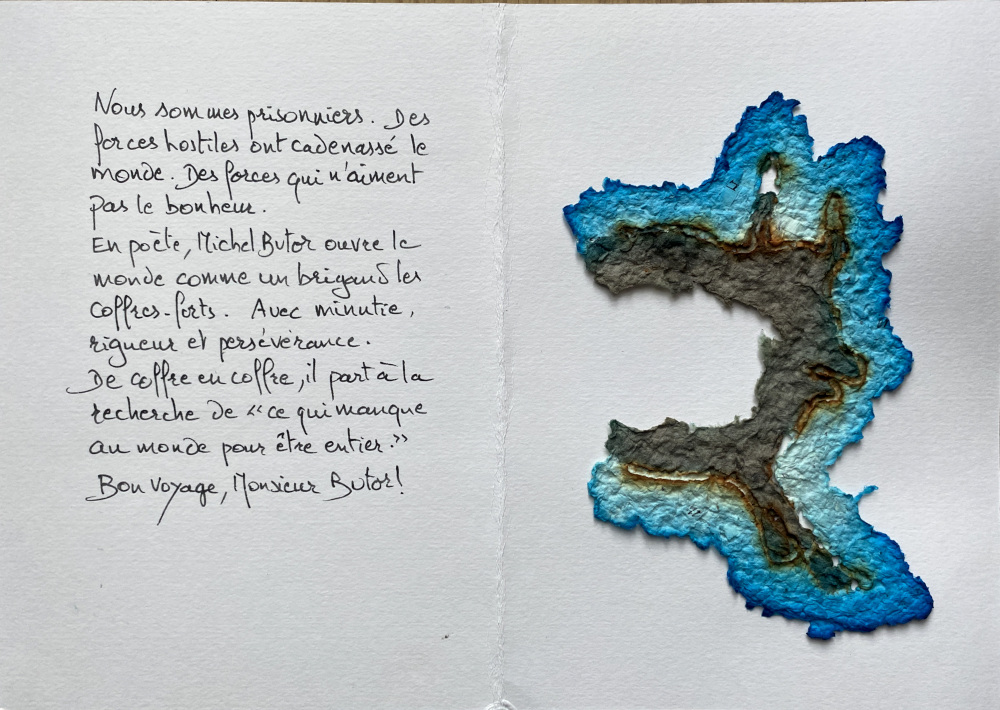 Nous sommes prisonniers. Des
forces hostiles ont cadenassé le
monde. Des forces qui n'aiment
pas le bonheur.
En poète, Michel Butor ouvre le
monde comme un brigand les
coffres-forts. Avec minutie,
rigueur et persévérance.
De coffre en coffre, il part à la
recherche de "ce qui manque
au monde pour être entier."
Bon voyage, Monsieur Butor!